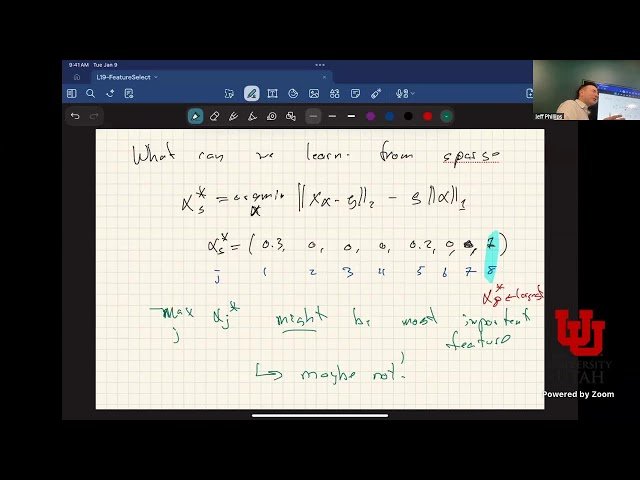 9:41 AM Tue Jan 9
L19-FeatureSelect
Jeff Phillips
What can we learn from sparse
α*_s = argmin_α ||Xα - y||_2 - s||α||_1
α*_s = ( 0.3, 0, 0, 0, 0.2, 0, 0, 7 )
j 1 2 3 4 5 6 7 8
α*_8 ← largest
max_j α_j* might be most important
feature
↳ maybe not!
UTAH
Powered by Zoom